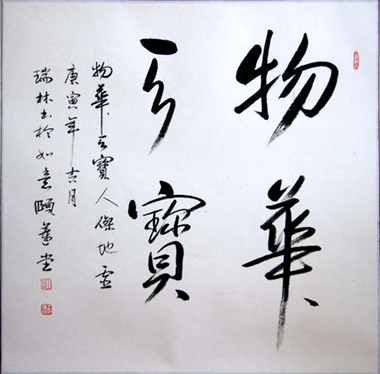 物華
天寶
物華天寶人傑地靈
庚寅年吉月
瑞林书於如意頤堂